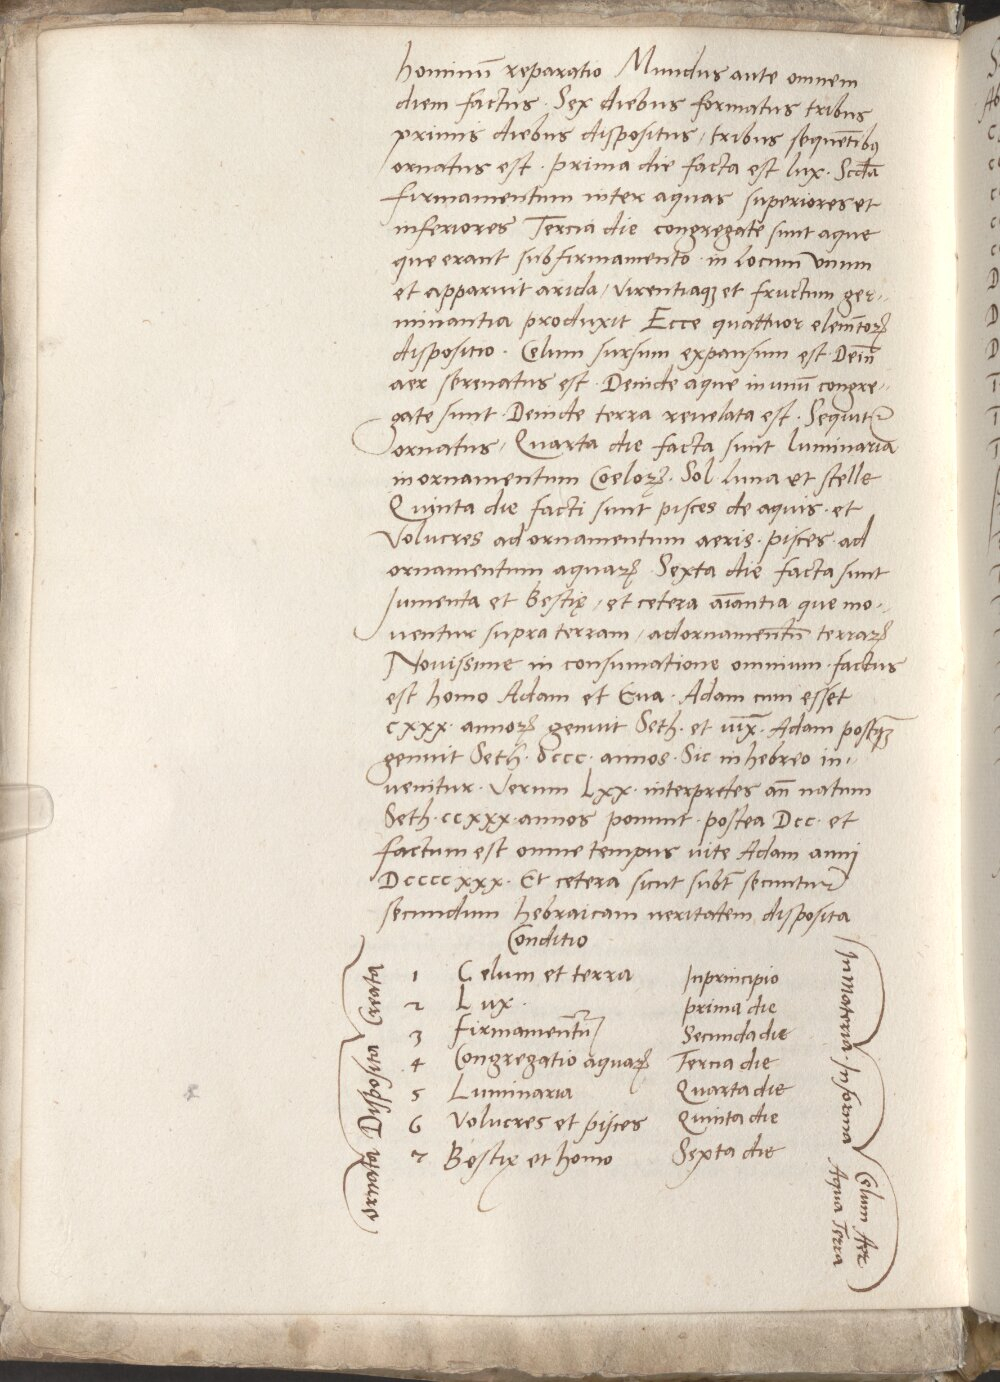 hominū reparatio Mundus ante omnem
diem factus. Sex diebus formatus tribus
primis diebus dispositus, tribus sequētibꝯ
ornatus est. prima die facta est lux. Scd̄a
firmamentum inter aquas superiores et
inferiores Tercia die congregate sunt aque
que erant sub firmamento in locum vnum
et apparuit arida, virentiaqꝫ et fructum ger-
minantia produxit Ecce quattuor elemētoꝝ
dispositio. Celum sursum expansum est. Dein̄
aer serenatus est. Deinde aque in unū congre-
gate sunt. Deinde terra reuelata est. Sequit᷑
ornatus, Quarta die facta sunt luminaria
in ornamentum Coeloꝝ. Sol luna et stelle
Quinta die facti sunt pisces de aquis. et
Volucres ad ornamentum aeris. pisces. ad
ornamentum aquaꝝ. Sexta die facta sunt
Jumenta et Bestię, et cetera aīantia que mo-
uentur supra terram, ad ornamentū terraꝝ
Nouissime in consumatione omnium factus
est homo Adam et Eua. Adam cum esset
cxxx. annoꝝ genuit Seth. et vix̄. Adam postqꝫ
genuit Seth. dccc. annos. Sic in hebreo in-
uenitur. Verum Lxx. interpretes an̄ natum
Seth. ccxxx. annos ponunt. postea Dcc. et
factum est omne tempus uite Adam anni
Dccccxxx. Et cetera sicut subt̄ secuntur
secundum hebraicam ueritatem disposita
Conditio
1 Celum et terra In principio
2 Lux. prima die
3 Firmamentū Secunda die
4 Congregatio aquaꝝ Tercia die
5 Luminaria Quarta die
6 Volucres et pisces Quinta die
7 Bestię et homo Sexta die
Creata
Disposita
Ornata
In Materia. In forma
Celum Aer
Aqua Terra